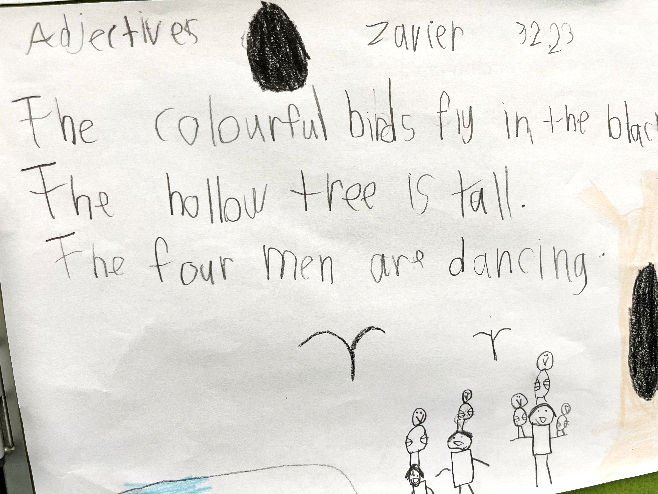 Adjectives Zavier 3.2.23
The colourful birds fly in the
The hollow tree is tall.
The four men are dancing.